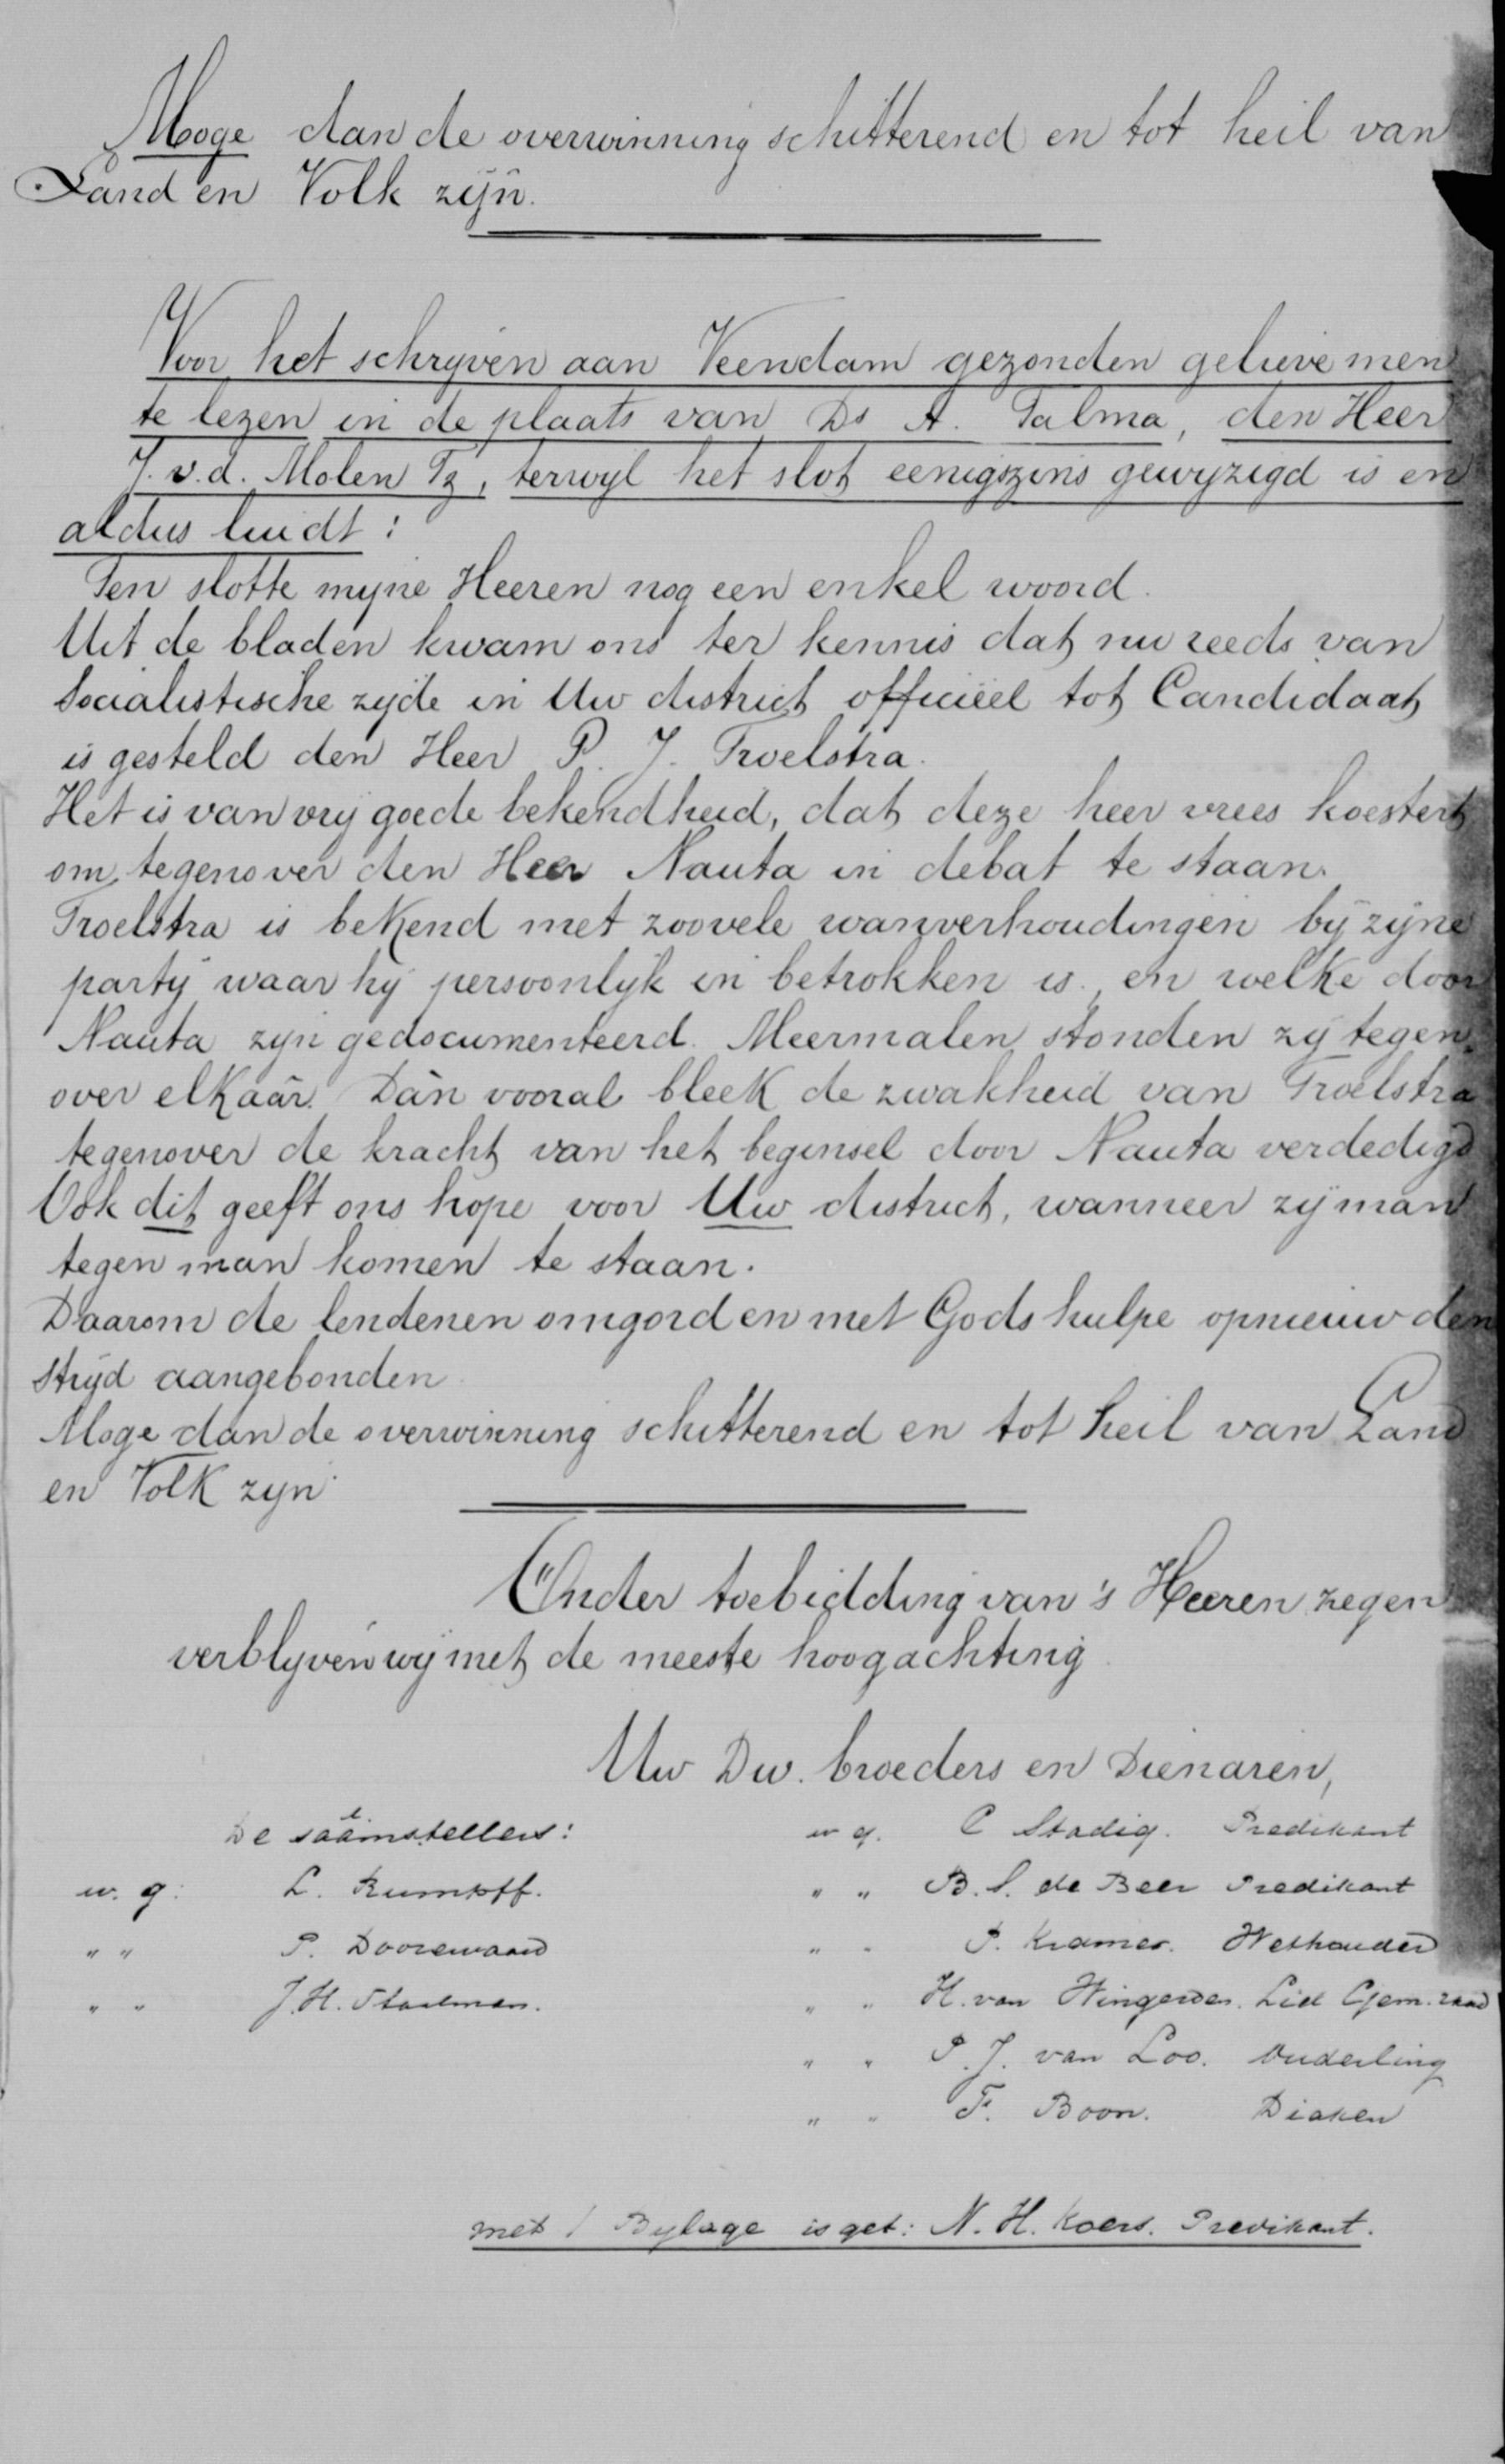 Moge dan de overwinning schitterend en tot heil van
Land en Volk zijn.
Voor het schrijven aan Veendam gezonden gelieve men
te lezen in de plaats van Ds A. Talma, den Heer
J. v.d. Molen Tz, terwijl het slot eenigszins gewijzigd is en
aldus luidt:
Ten slotte mijne Heeren nog een enkel woord.
Uit de bladen kwam ons ter kennis dat nu reeds van
Socialistische zijde in Uw district officiëel tot Candidaat
is gesteld den Heer P. J. Troelstra.
Het is van vrij goede bekendheid, dat deze heer vrees koestert
om tegenover den Heer Nauta in debat te staan.
Troelstra is bekend met zoovele wanverhoudingen bij zijne
partij waar hij persoonlijk in betrokken is, en welke door
Nauta zijn gedocumenteerd. Meermalen stonden zij tegen-
over elkaâr. Dàn vooral bleek de zwakheid van Troelstra
tegenover de kracht van het beginsel door Nauta verdedigd
Ook dit geeft ons hope voor Uw district, wanneer zij man
tegen man komen te staan.
Daarom de lendenen omgord en met Gods hulpe opnieuw den
strijd aangebonden
Moge dan de overwinning schitterend en tot heil van Land
en Volk zijn.
Onder toebidding van 's Heeren zegen
verblijven wij met de meeste hoogachting
Uw Dw. broeders en Dienaren,
De saâmstellers: w g. C Stadig. Predikant
w. g: L. Rumkoff. " " B. S. de Beer Predikant
" " P. Doorewaard " " P. Kramer. Wethouder
" " J. H. Staalman. " " H. van Wingerden. Lid Gem. raad
" " P. J. van Loo. Ouderling
" " F. Boon. Diaken
met 1 Bylage is get: N. H. Koers. Predikant.